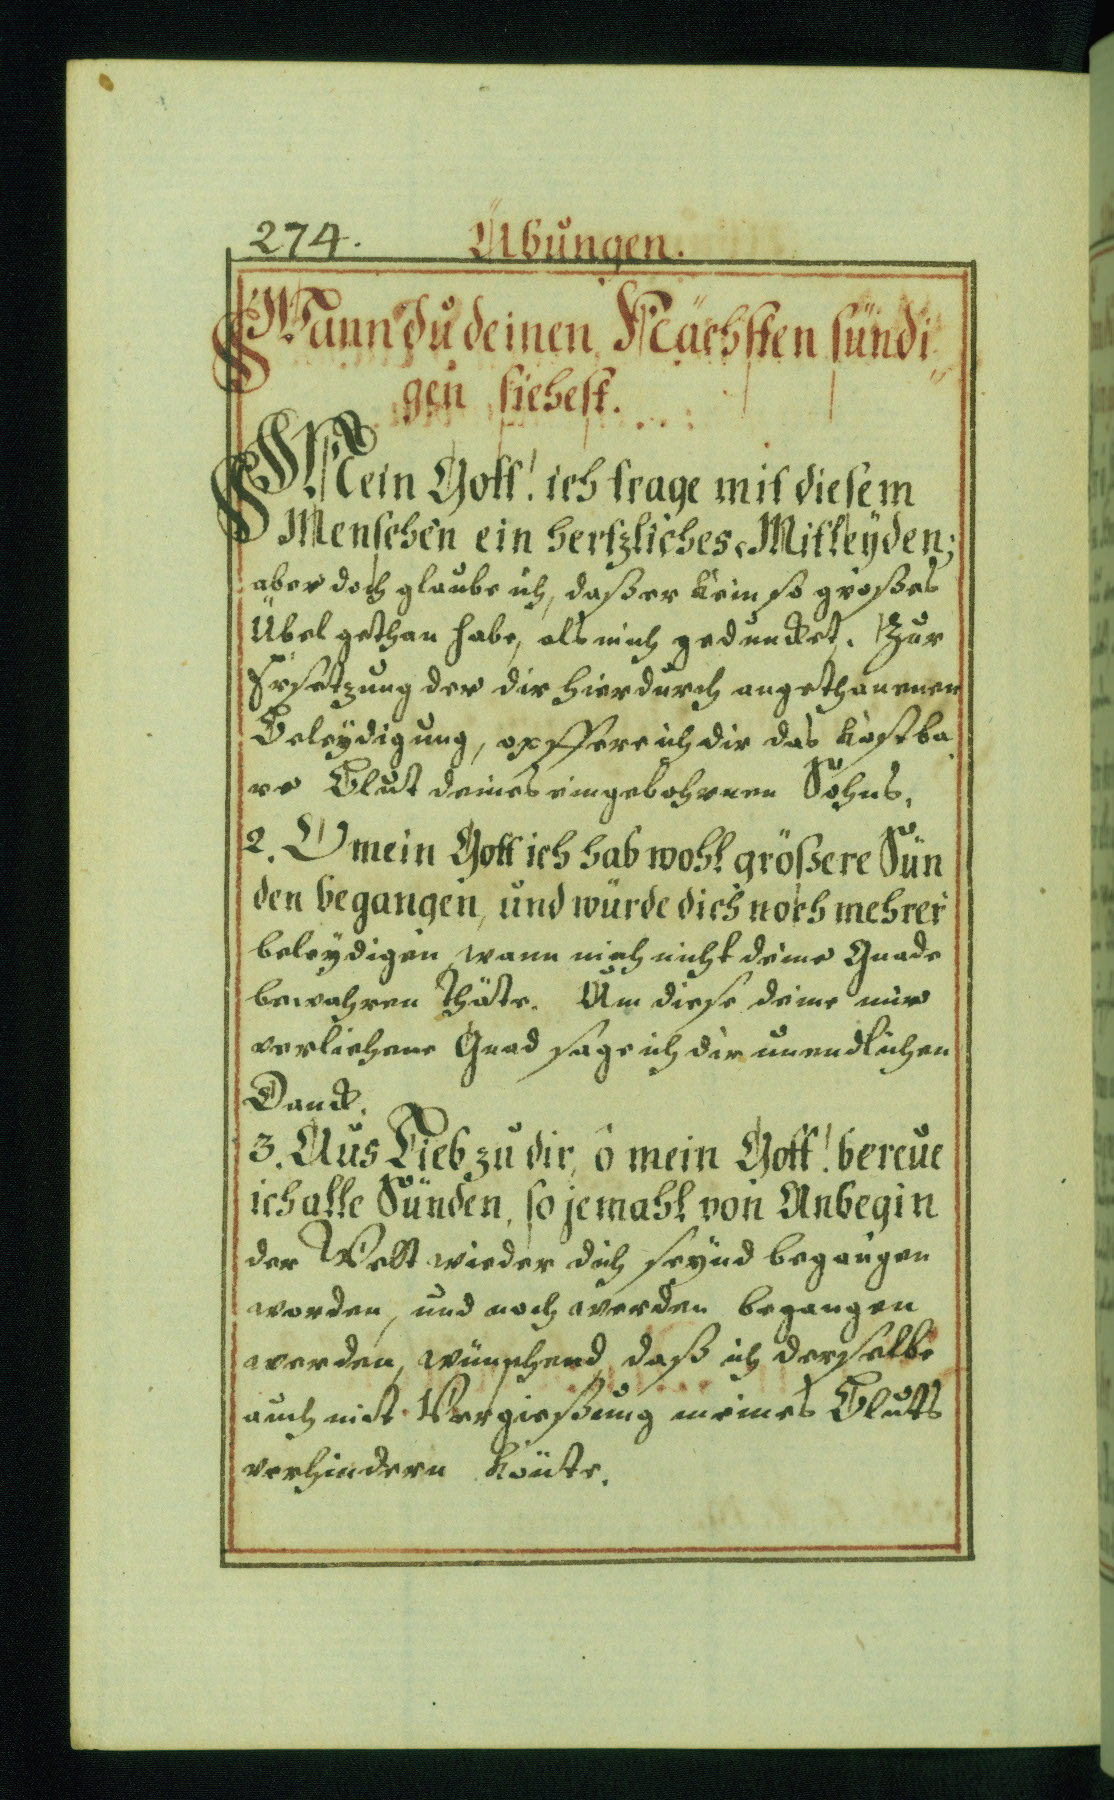 274. Übungen.
Wann du deinen Nächsten sündi„
gen siehest.
Mein Gott! ich trage mit diesem
Menschen ein hertzliches Mitleyden;
aber doch glaube ich, daß er kein so großes
Übel gethan habe, als mich geduncket. Zur
Ersetzung der dir hierdurch angethanenen
Beleydigung, opffere ich dir das kostba
re Blut deines eingebohrnen Sohns.
2. O mein Gott ich hab wohl größere Sün
den begangen, und würde dich noch mehrer
beleydigen, wann mich nicht deine Gnade
bewahren thäte. Um diese deine mir
verliehene Gnad sage ich dir unendlichen
Danck.
3. Aus Lieb zu dir, ô mein Gott! bereue
ich alle Sünden, so jemahl von Anbegin
der Welt wieder dich seynd begangen
worden, und noch werden begangen
werden, wünschend, daß ich derselbe
auch mit Vergießung meines Bluts
verhindern könte.